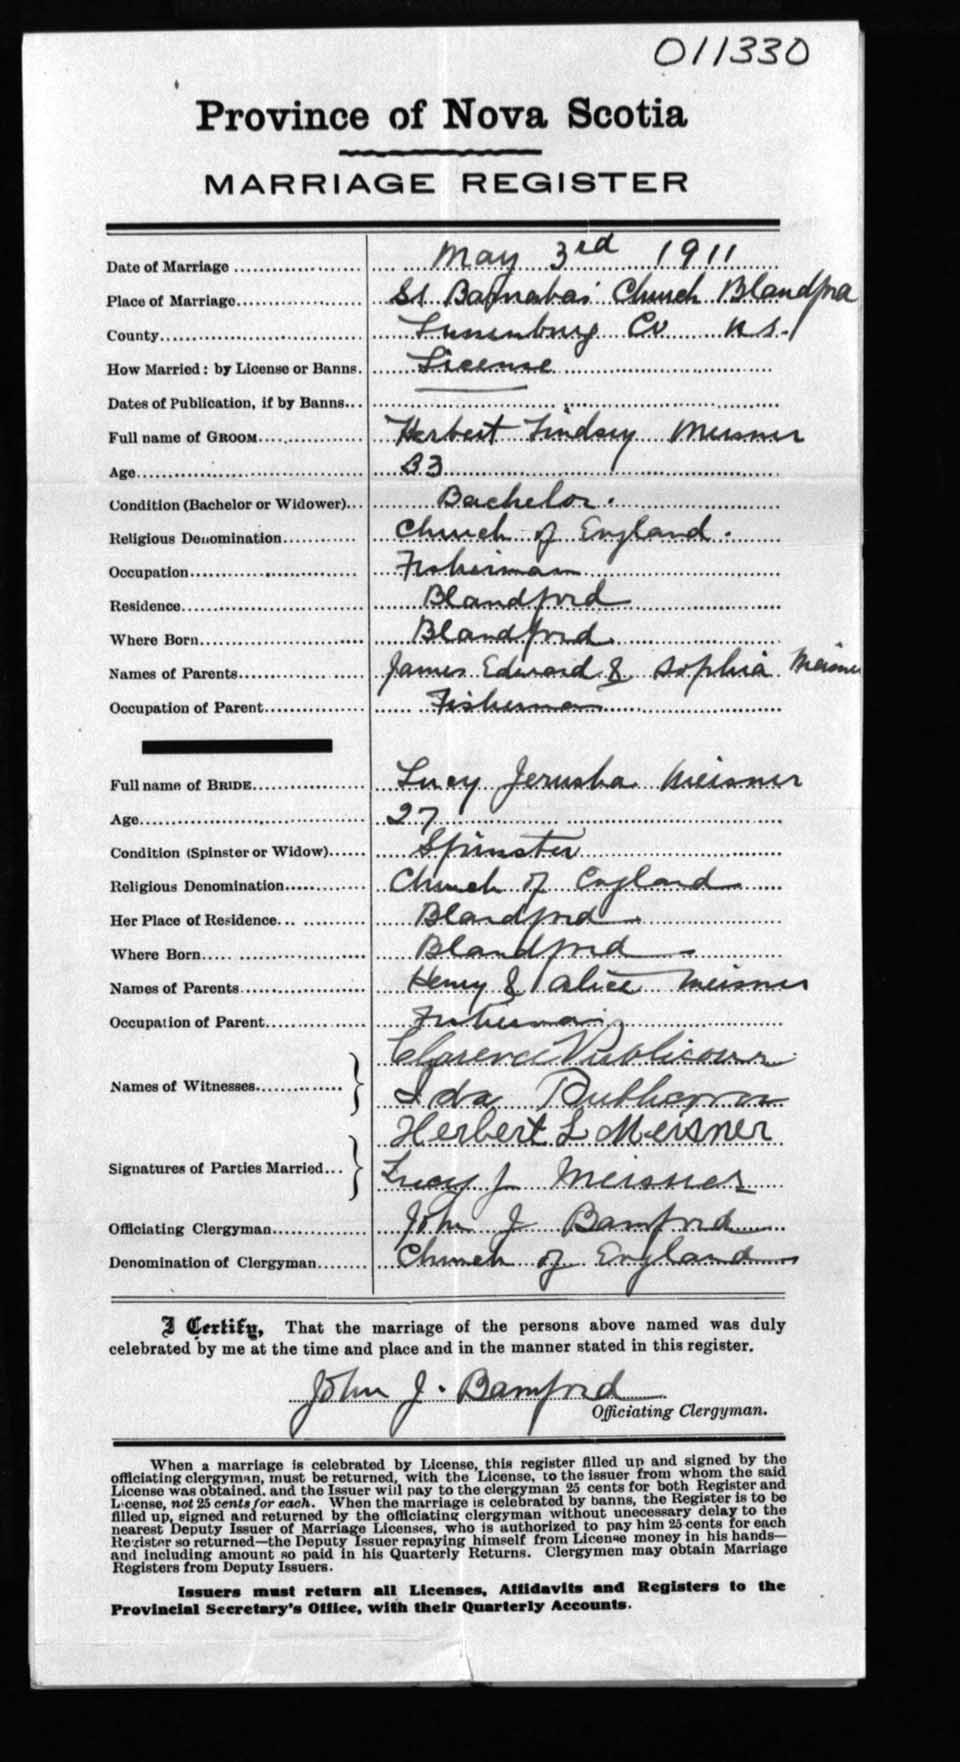 011330
Province of Nova Scotia
MARRIAGE REGISTER
Date of Marriage May 3rd 1911
Place of Marriage St Barnabas' Church Blandford
County Lunenburg Co N.S.
How Married: by License or Banns. License
Dates of Publication, if by Banns
Full name of GROOM Herbert Lindsey Meisner
Age 33
Condition (Bachelor or Widower) Bachelor.
Religious Denomination Church of England.
Occupation Fisherman
Residence Blandford
Where Born Blandford
Names of Parents James Edward & Sophia Meisner
Occupation of Parent Fisherman
Full name of BRIDE Lucy Jerusha Meisner
Age 27
Condition (Spinster or Widow) Spinster
Religious Denomination Church of England
Her Place of Residence Blandford
Where Born Blandford
Names of Parents Henry & Alice Meisner
Occupation of Parent Fisherman
Names of Witnesses Clarence Publicover
Ida Publicover
Signatures of Parties Married Herbert L Meisner
Lucy J Meisner
Officiating Clergyman John J Bamford
Denomination of Clergyman Church of England
I Certify, That the marriage of the persons above named was duly
celebrated by me at the time and place and in the manner stated in this register.
John J. Bamford
Officiating Clergyman.
When a marriage is celebrated by License, this register filled up and signed by the
officiating clergyman, must be returned, with the License, to the issuer from whom the said
License was obtained, and the Issuer will pay to the clergyman 25 cents for both Register and
License, not 25 cents for each. When the marriage is celebrated by banns, the Register is to be
filled up, signed and returned by the officiating clergyman without unnecessary delay to the
nearest Deputy Issuer of Marriage Licenses, who is authorized to pay him 25 cents for each
Register so returned—the Deputy Issuer repaying himself from License money in his hands—
and including amount so paid in his Quarterly Returns. Clergymen may obtain Marriage
Registers from Deputy Issuers.
Issuers must return all Licenses, Affidavits and Registers to the
Provincial Secretary's Office, with their Quarterly Accounts.